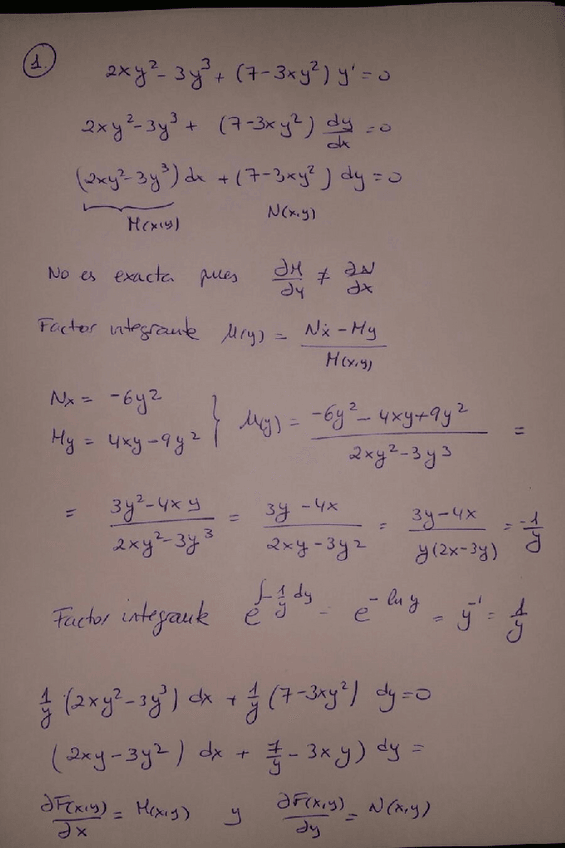 1.
2xy² - 3y³ + (7 - 3xy²) y' = 0
2xy² - 3y³ + (7 - 3xy²) dy/dx = 0
(2xy² - 3y³) dx + (7 - 3xy²) dy = 0
M(x,y) N(x,y)
No es exacta pues ∂M/∂y ≠ ∂N/∂x
Factor integrante μ(y) = (Nx - My)/M(x,y)
Nx = -6y²
My = 4xy - 9y² } μ(y) = (-6y² - 4xy + 9y²)/(2xy² - 3y³) =
= (3y² - 4xy)/(2xy² - 3y³) = (3y - 4x)/(2xy - 3y²) = (3y - 4x)/(y(2x - 3y)) = -1/y
Factor integrante e^(∫-1/y dy) = e^(-ln y) = y⁻¹ = 1/y
1/y (2xy² - 3y³) dx + 1/y (7 - 3xy²) dy = 0
(2xy - 3y²) dx + 7/y - 3xy) dy =
∂F(x,y)/∂x = M(x,y) y ∂F(x,y)/∂y = N(x,y)